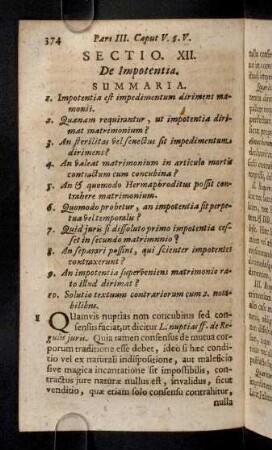 374 Pars III. Caput V. §. V.
SECTIO. XII.
De Impotentia.
SUMMARIA.
1. Impotentia est impedimentum dirimens matri-
monii.
2. Quænam requirantur, ut impotentia diri-
mat matrimonium?
3. An sterilitas vel senectus sit impedimentum
dirimens?
4. An valeat matrimonium in articulo mortis
contractum cum concubina?
5. An & quomodo Hermaphroditus possit con-
trahere matrimonium.
6. Quomodo probetur, an impotentia sit perpe-
tua vel temporalis?
7. Quid juris si dissoluto primo impotentia ces-
set in secundo matrimonio?
8. An separari possint, qui scienter impotentes
contraxerunt?
9. An impotentia superveniens matrimonio ra-
to illud dirimat?
10. Solutio textuum contrariorum cum 2. nota-
bilibus.
1 QUamvis nuptias non concubitus sed con-
sensus faciat, ut dicitur L. nuptias ff. de Re-
gulis juris. Quia tamen consensus de mutua cor-
porum traditione esse debet, ideo si hæc conditi-
o vel ex naturali indispositione, aut maleficio
sive magica incantatione sit impossibilis, con-
tractus jure naturæ nullus est, invalidus, sicut
venditio, quæ etiam solo consensu contrahitur,
nulla